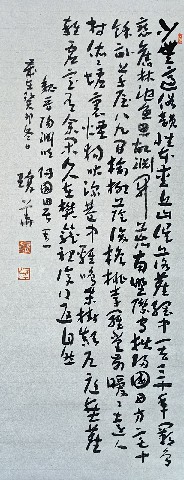 少無適俗韻性本愛丘山誤落塵網中一去三十年羈鳥
戀舊林池魚思故淵開荒南野際守拙歸園田方宅十
餘畝草屋八九間榆柳蔭後檐桃李羅堂前曖曖遠人
村依依墟里煙狗吠深巷中雞鳴桑樹顛戶庭無塵
雜虛室有餘閒久在樊籠裡復得返自然
魏晉陶淵明歸園田居其一
歲在癸卯冬日